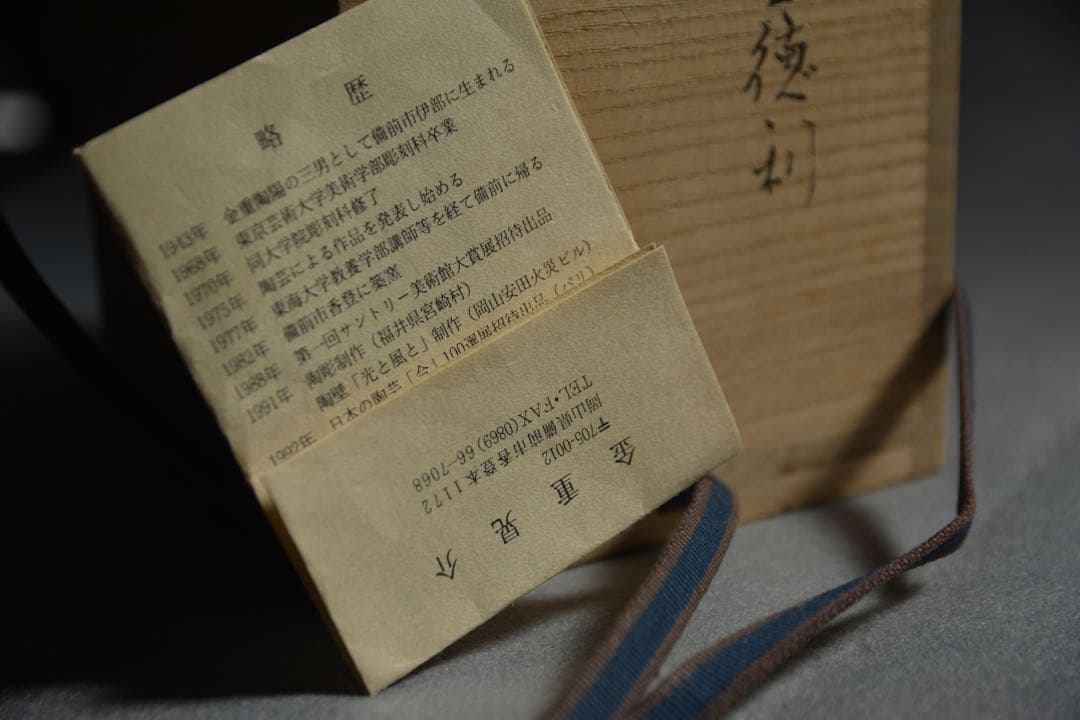 略歴
1943年 金重陶陽の三男として備前市伊部に生まれる
1968年 東京芸術大学美術学部彫刻科卒業
1970年 同大学院彫刻科修了
1975年 陶芸による作品を発表し始める
1977年 東海大学教養学部講師等を経て備前に帰る
1982年 備前市香登に築窯
1988年 第一回サントリー美術館大賞展招待出品
1991年 陶彫制作(福井県宮崎村)
陶壁「光と風と」制作(岡山安田火災ビル)
1992年 日本の陶芸「今」100選展招待出品(パリ)
金重晃介
〒705-0012
岡山県備前市香登本1172
TEL・FAX(0869)66-7068
徳利